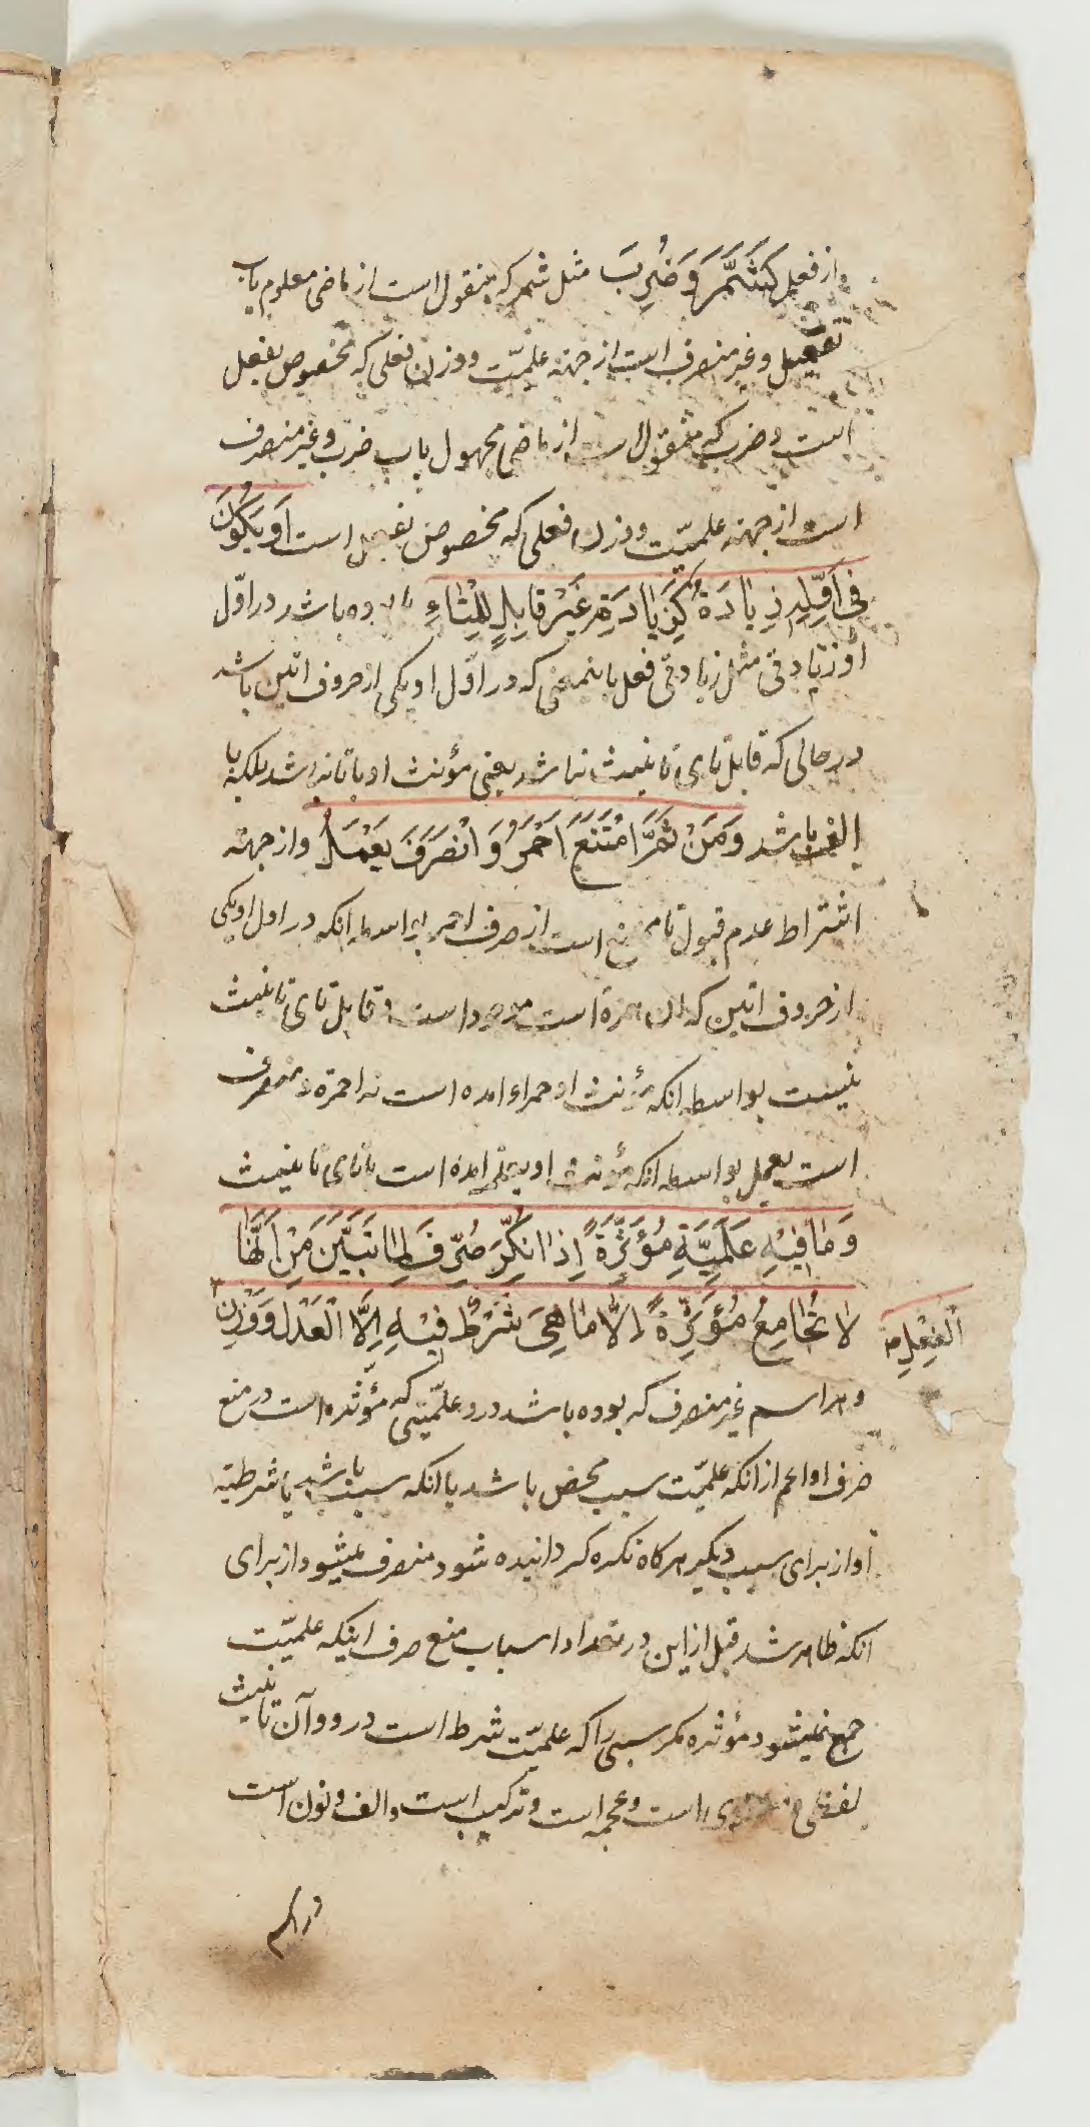 از فعل كَشَمَّرَ وَ ضُرِبَ مثل شمر که منقول است از ماضی معلوم باب
تفعیل و غیر منصرف است از جهته علمیّت و وزن فعلی که مخصوص بفعل
است و ضرب که منقول است از ماضی مجهول باب ضرب و غیر منصرف
است از جهته علمیّت و وزن فعلی که مخصوص بفعل است اَوْ يَكُونَ
فِى اَوَّلِهِ زِيادَةٌ كَزِيادَتِهِ غَيْرَ قابِلٍ لِلْتّاءِ یا بوده باشد در اوّل
او زیادتی مثل زیادتی فعل باینمعنی که در اوّل او یکی از حروف اتین باشد
در حالی که قابل تای تانیث نباشد یعنی مؤنث او با تا نباشد بلکه با
الف باشد وَ مِنْ ثَمَّ امْتَنَعَ اَحْمَرُ وَ انْصَرَفَ يَعْمَلٌ و از جهته
اشتراط عدم قبول تا ممتنع است از صرف احمر بواسطه انکه در اول او یکی
از حروف اتین که ان همزه است موجود است و قابل تای تانیث
نیست بواسطه انکه مؤنث او حمراء امده است نه احمرة و منصرف
است یعمل بواسطه انکه مؤنث او یعملة امده است با تای تانیث
وَ ما فِيْهِ عَلَمِيَّةٌ مُؤَثِّرَةٌ اِذا نُكِّرَ صُرِفَ لِما تَبَيَّنَ مِنْ اَنَّها
لا تُجامِعُ مُؤَثِّرَةً اِلّا ما هِىَ شَرْطٌ فِيْهِ اِلَّا الْعَدْلَ وَ وَزْنَ
الْفِعْلِ
و هر اسم غیر منصرف که بوده باشد در و علمیّتی که مؤثره است در منع
صرف او اعم از انکه علمیّت سبب محض باشد یا انکه سبب باشد با شرطیّة
او از برای سبب دیگر هر کاه نکره کردانیده شود منصرف میشود از برای
انکه ظاهر شد قبل از این در تعداد اسباب منع صرف اینکه علمیّت
جمع نمیشود مؤثره مکر سببی را که علمیّت شرط است در و و آن تانیث
لفظی و معنوی است و عجمه است و ترکیب است و الف و نون است
در اسم